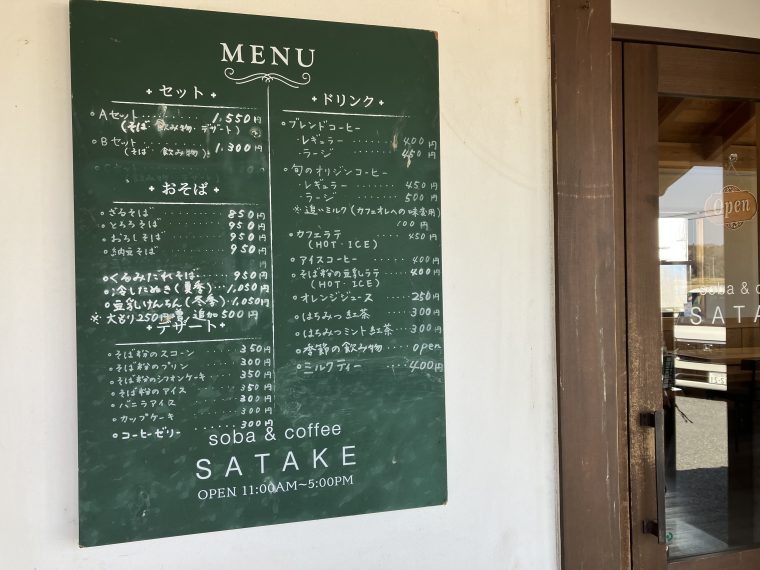 MENU
セット
Aセット 1,550円
(そば 飲み物 デザート)
Bセット 1,300円
(そば 飲み物)
おそば
ざるそば 850円
とろろそば 950円
おろしそば 950円
納豆そば 950円
くるみだれそば 950円
冷したぬき(夏季) 1,050円
豆乳けんちん(冬季) 1,050円
※大もり250円増 追加500円
デザート
そば粉のスコーン 350円
そば粉のプリン 300円
そば粉のシフォンケーキ 350円
そば粉のアイス 350円
バニラアイス 300円
カップケーキ 300円
コーヒーゼリー 300円
ドリンク
ブレンドコーヒー
・レギュラー 400円
・ラージ 450円
旬のオリジンコーヒー
・レギュラー 450円
・ラージ 500円
※追いミルク(カフェオレへの味変用)
100円
カフェラテ 450円
(HOT・ICE)
アイスコーヒー 400円
そば粉の豆乳ラテ 400円
(HOT・ICE)
オレンジジュース 250円
はちみつ紅茶 300円
はちみつミント紅茶 300円
季節の飲み物 open
ミルクティー 400円
soba & coffee
SATAKE
OPEN 11:00AM~5:00PM
Open
soba & co
SATA